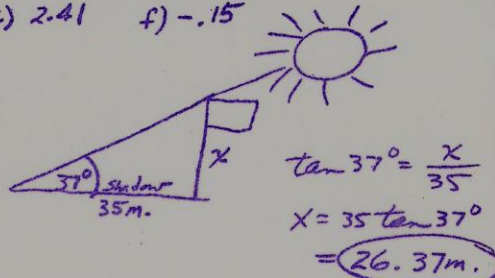 ) 2.41 f) -.15
37° shadow
35 m.
x
tan 37° = x/35
x = 35 tan 37°
= 26.37m.